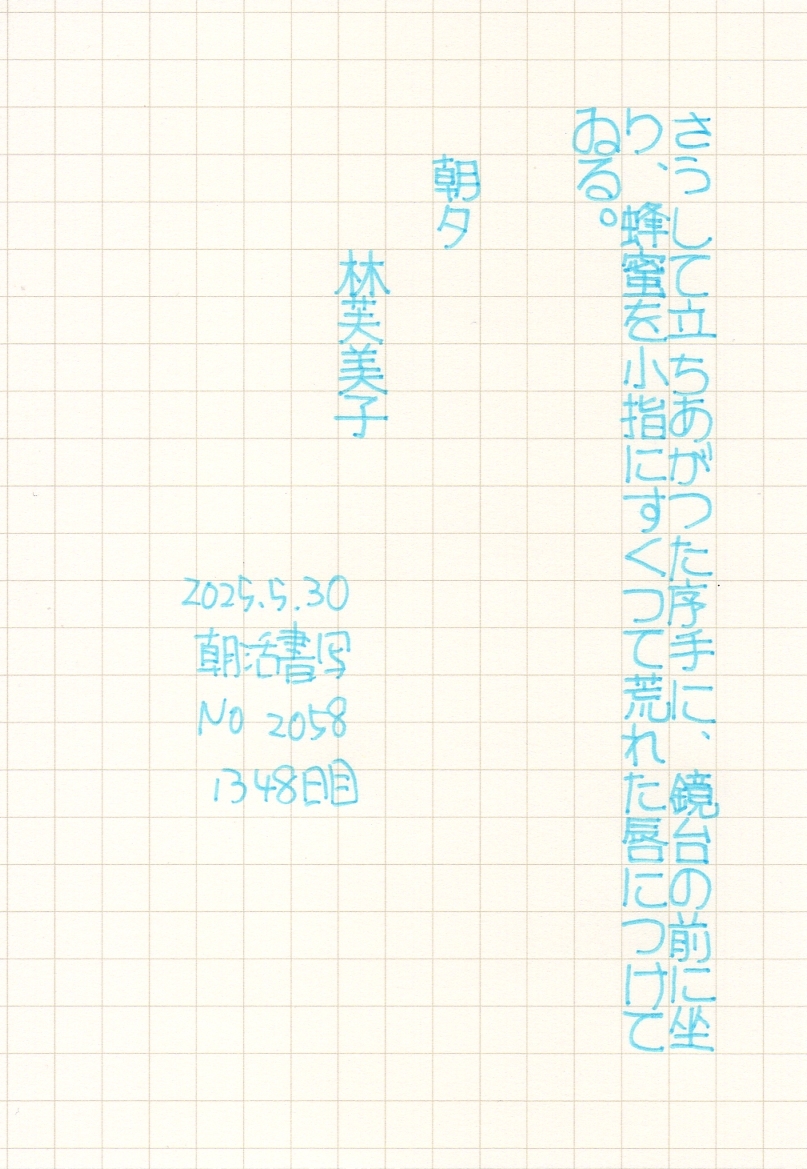 さうして立ちあがつた序手に、鏡台の前に坐
り、蜂蜜を小指にすくつて荒れた唇につけて
ゐる。
朝夕
林芙美子
2025.5.30
朝活書写
No 2058
1348日目